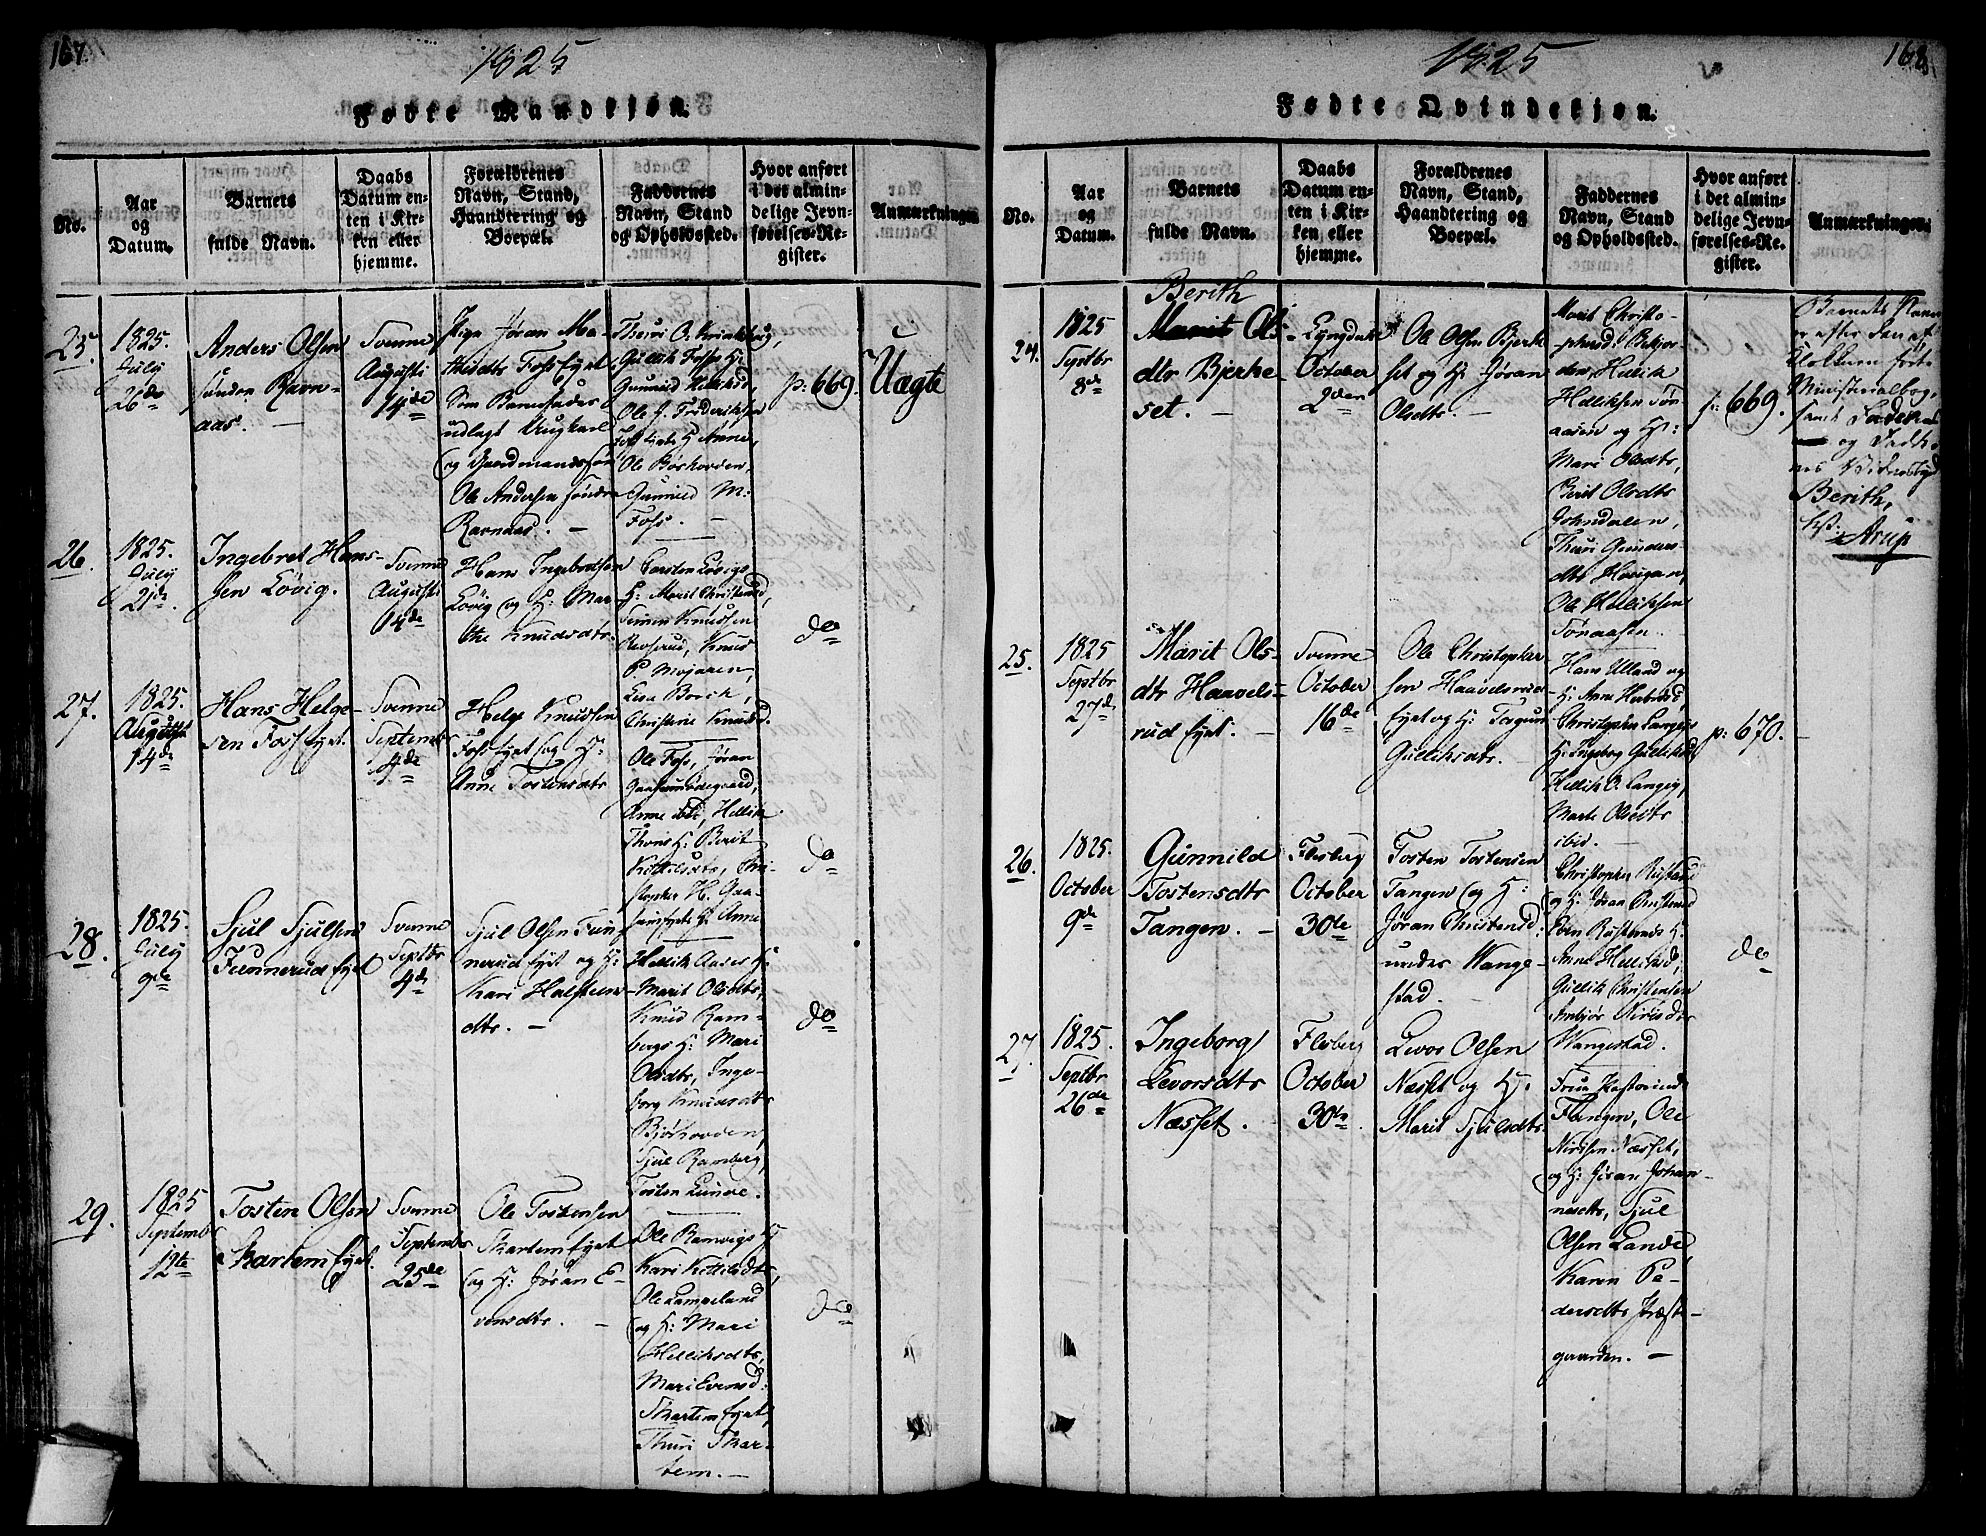 167.
1825
Fødte Mandkjøn.
No.
Aar
og
Datum.
Barnets
fulde Navn.
Daabs
Datum en-
ten i Kir-
ken eller
hjemme.
Forældrenes
Navn, Stand,
Haandtering og
Boepæl.
Faddernes
Navn, Stand
og Opholdssted.
Hvor anført
i det almin-
delige Jevn-
førelses-Re-
gister.
Anmærkninger.
25.
1825.
July
26de
Anders Olsen
søndre Ravn-
aas. —
Svenne
Augusti
14de
Pige Jøran Ma-
thisdtr Fossejet
Som Barnefader
udlagt Ungkarl
og Gaardmandssøn
Ole Andersen søndre
Ravnaas. —
Gullik Foss
Gunnild Helliksd,
Ole Frederiksen
Anne,
Gunnild M:
Foss. —
p: 669.
Uægte
26.
1825.
July
21de.
Ingebret Han-
sen Løvig.
Svenne
Augusti
14de
Hans Ingebretsen
Løvig og H: Mar-
the Knudsdtr.
Carsten Løvigs
H: Marit Christensd,
Simen Knudsen
Knud
P. Mojaren,
Lisa Borch,
Christine Knudsd.
do
27.
1825.
Augusti
14de
Hans Helge-
sen Fossejet.
Svenne
Septembr
4de
Helge Knudsen
Fossejet og H:
Anne Tostensdtr
Ole Foss, Jøran
Gaasumødegaard,
Anne ibid, Hellik
Thons H: Berit
Kittilsdtr, Chri-
stopher H. Gaa-
H: Anne
do
28.
1825.
July
9de
Sjul Sjulsen
Funnerudejet
Svenne
Septbr
4de
Sjul Olsen Fun-
nerudejet og H:
Kari Halsteens-
dtr. —
Hellik Aases H:
Marit Olsdtr,
Knud Ram-
bergs H: Mari
Olsdtr, Inge-
borg Knudsdtr
Bjøhovden,
Sjul Ramberg,
Tosten Lunde.
do
29.
1825
Septembr
12te
Tosten Olsen
Skartemejet.
Svenne
Septembr
25de
Ole Tostensen
Skartemejet
og H: Jøran E-
vensdtr. —
Ole Ramvigs H
Kari Kittilsdtr,
Ole Lampeland
og H: Mari
Helliksdtr,
Mari Evensd:
Skartemejet,
Thuri Skar-
tem. —
do
168
1825
Fødte Qvindekjøn.
No.
Aar
og
Datum.
Barnets
fulde Navn.
Daabs
Datum en-
ten i Kir-
ken, eller
hjemme.
Forældrenes
Navn, Stand,
Haandtering og
Boepæl.
Faddernes
Navn, Stand
og Opholdssted.
Hvor anført
i det almin-
delige Jevn-
førelses-Re-
gister.
Anmærkninger.
24.
1825
Septbr
8de
Berith
Marit Ols-
dtr Bjerke
set. —
Lyngdal
October
2den
Ole Olsen Bjerk
set og H: Jøran
Olsdtr. —
Marit Christo-
phersd:
Hellik
Helliksen Tøn-
aasen og H:
Mari Olsdtr,
Berit Olsdtr
Johndalen,
Thuri Gunders-
dtr Haugan,
Ole Helliksen
Tønaasen. —
p: 669.
Barnets Navn
er efter den af
Klokkeren førte
Ministerialbog,
samt Faderens
og Fadder-
nes Vidnesbyrd
Berith,
Arup
25.
1825
Septbr
27de
Marit Ols-
dtr Haavels-
rudejet. —
Svenne
October
16de
Ole Christopher
sen Haavelsrud
ejet og H: Torgun
Gulliksdtr. —
Hans Ulland og
H: Anne
Christopher Langeig
H: Ingeborg Gulliksd,
Hellik O. Langeig,
Marte Olsdtr
ibid. —
p: 670. —
26.
1825.
October
9de
Gunnild
Tostensdtr
Tangen. —
Flesberg
October
30te
Tosten Tostensen
Tangen og H:
Jøran Christensd.
under Wange-
stad. —
Christopher Rustand
og H: Jøran Christensd
H:
Anne Helliksd,
Gullik Christensen
Wangestad.
do
27.
1825.
Septbr
26de
Ingeborg
Levorsdtr
Næsset.
Flesberg
October
30te.
Levor Olsen
Næsset og H:
Marit Sjulsdtr.
Frue Pastorinde
Flengen, Ole
Nirisen Næsset,
og H: Giran Johan-
nesdtr, Sjul
Olsen Lande,
Karen Pe-
dersdtr Præste-
gaarden. —